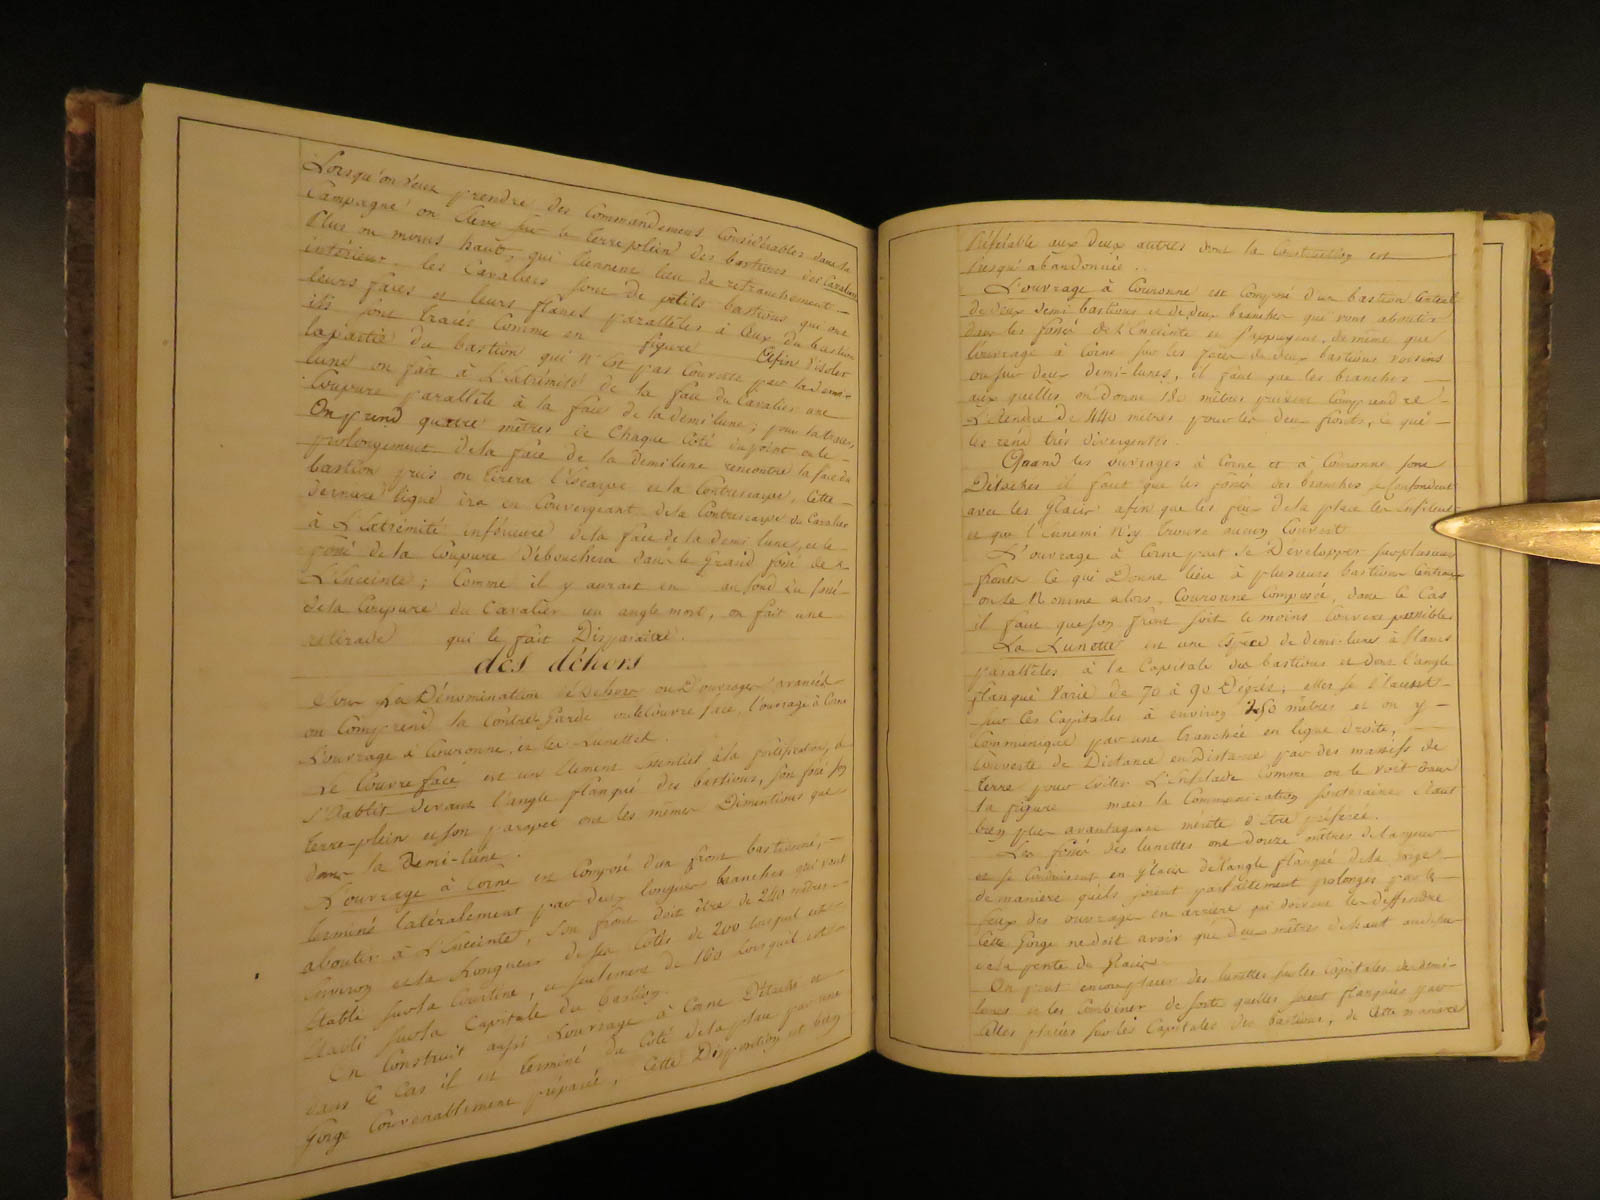 Lorsqu'on veut prendre des Commandemens Considérables dans la
Campagne on élève sur le terreplein des bastions des Cavaliers
Plus ou moins hauts, qui tiennent lieu de retranchement
intérieur. les Cavaliers sont de petits bastions qui ont
leurs faces et leurs flancs parallèles à Ceux du bastion
ils sont tracés Comme en figure Afin d'isoler
la partie du bastion qui n'est pas Couverte par la demi-
lune on fait à L'extrémité de la face du Cavalier une
Coupure parallèle à la face de la demi lune; pour la tracer,
On prend quatre mètres de Chaque Côté du point ou le
prolongement de la face de la demi lune rencontre la face du
bastion puis on tirera l'Escarpe et la Contrescarpe, Cette
dernière ligne ira en Convergeant de la Contrescarpe du Cavalier
à L'extrémité inférieure de la face de la demi lune, et le
fossé de la Coupure débouchera dans le Grand fossé de
L'Enceinte; Comme il y aurait en au fond du fossé
de la Coupure du Cavalier un angle mort, on fait une
retirade qui le fait Disparaitre.
des déhors
Sous La Dénomination de Dehors ou D'ouvrages avancés
on Comprend la Contre-Garde ou le Couvre face, l'ouvrage à Corne
L'ouvrage à Couronne, et les Lunettes.
Le Couvre face est un Element essentiel à la fortification, il
s'établit devant l'angle flanqué des bastions, son fossé son
terre-plein et son parapet ont les mêmes Dimentions que
dans la Demi-lune.
L'ouvrage à Corne est Composé d'un front bastionné,
terminé latéralement par deux longues branches qui vont
aboutir à L'Enceinte, Son front doit être de 240 mètres
Environ et la Longueur de ses Côtés de 200 lorsqu'il est
établi sur la Courtine, et seulement de 160 lorsqu'il est
établi sur la Capitale du bastion.
On Construit aussi L'ouvrage à Corne Détaché et
dans Ce Cas il est terminé du Côté de la place par une
Gorge Convenablement préparée, Cette Disposition est bien
Préférable aux deux autres dont la Construction est
Presqu'abandonnée.
L'ouvrage à Couronne est Composé d'un bastion Central
de deux demi bastions et de deux branches qui vont aboutir
dans les fossés de l'Enceinte et s'appuyent, de même que
l'ouvrage à Corne sur les faces de deux bastions voisins
ou sur deux demi-lunes, il faut que les branches
aux quelles on donne 180 mètres puissent Comprendre
L'étendue de 440 mètres pour les deux fronts, Ce qui
les rend très divergentes.
Quand les ouvrages à Corne et à Couronne sont
Détachés il faut que les fossés des branches se Confondent
avec les Glacis afin que les feux de la place les enfilent
et que l'Ennemi n'y trouve aucun Couvert
L'ouvrage à Corne peut Se Développer sur plusieurs
fronts Ce qui Donne lieu à plusieurs bastions Centraux
on le Nomme alors, Couronne Composée, dans Ce Cas
il faut que son front soit le moins Convexe possible
La Lunette est une Espèce de demi-lune à flancs
parallèles à la Capitale des bastions et dont l'angle
flanqué Varie de 70 à 90 Dégrés; elles se placent
sur les Capitales à environ 250 mètres et on y
Communique par une tranchée en ligne droite,
Couverte de Distance en Distance par des massifs de
terre pour éviter L'Enfilade Comme on le voit dans
la figure mais la Communication souteraine étant
bien plus avantageuse mérite d'être préférée.
Les fossés des lunettes ont douze mètres de largeur
et se Conduisent en glacis de l'angle flanqué de la gorge
de manière qu'ils soient parfaitement prolongés par les
feux des ouvrages en arrière qui doivent les deffendre
Cette Gorge ne doit avoir que deux mètres de haut au dessus
de la pente du Glacis.
On peut encore placer des lunettes sur les Capitales de demi-
lunes et les Combiner de sorte quelles soient flanquées par
Celles placées sur les Capitales des bastions, de Cette manière